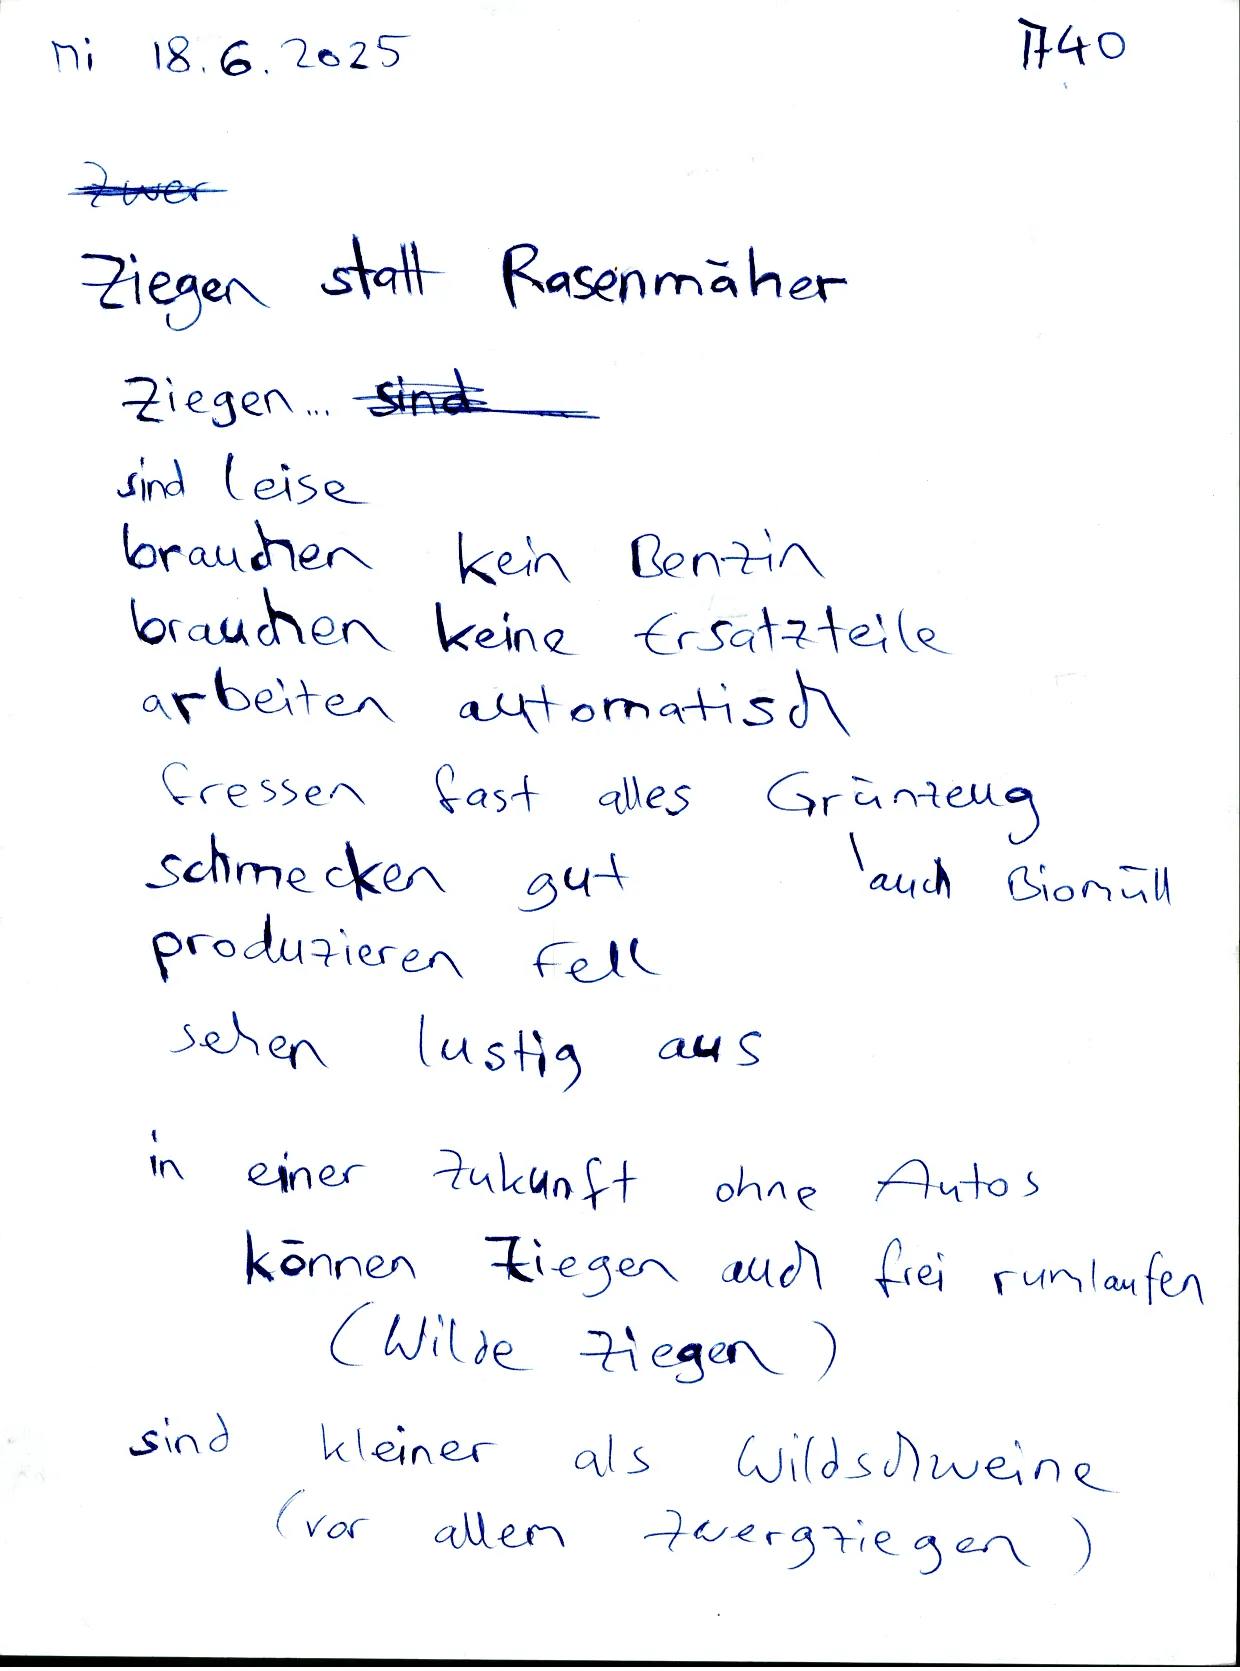 Mi 18.6.2025 1740
Zwer
Ziegen statt Rasenmäher
Ziegen... sind
sind leise
brauchen kein Benzin
brauchen keine Ersatzteile
arbeiten automatisch
fressen fast alles Grünzeug
auch Biomüll
schmecken gut
produzieren Fell
sehen lustig aus
in einer Zukunft ohne Autos
können Ziegen auch frei rumlaufen
(Wilde Ziegen)
sind kleiner als Wildschweine
(vor allem Zwergziegen)